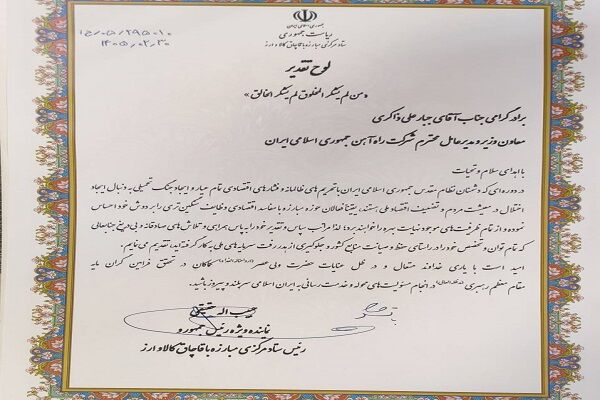 جمهوری اسلامی ایران
ریاست جمهوری
ستاد مرکزی مبارزه با قاچاق کالا و ارز
۱۴۰۵/۰۲/۳۰
لوح تقدیر
«من لم یشکر المخلوق لم یشکر الخالق»
برادر گرامی جناب آقای جبار علی ذاکری
معاون وزیر و مدیر عامل محترم شرکت راه آهن جمهوری اسلامی ایران
با اهدای سلام و تحیات
در دوره‌ای که دشمنان نظام مقدس جمهوری اسلامی ایران با تحریم های ظالمانه و فشارهای اقتصادی تمام عیار و ایجاد جنگ تحمیلی به دنبال ایجاد
اختلال در معیشت مردم و تضعیف اقتصاد ملی هستند، یقینا فعالان حوزه مبارزه با مفاسد اقتصادی وظایف سنگین تری را بر دوش خود احساس
نموده و از تمام ظرفیت های موجود نهایت بهره را خواهند برد؛ لذا مراتب سپاس و تقدیر خود را به پاس همراهی و تلاش های صادقانه و بی دریغ جنابعالی
که تمام توان و تخصص خود را در راستای حفظ و صیانت منابع کشور و جلوگیری از هدررفت سرمایه های ملی به کار گرفته‌اید، تقدیم می نمایم.
امید است با یاری خداوند متعال و در ظل عنایات حضرت ولی عصر (ارواحنا له الفداء) کماکان در تحقق فرامین گران مایه
مقام معظم رهبری (مد ظله العالی) در انجام مسئولیت های محوله و خدمت رسانی به ایران اسلامی سربلند و پیروز باشید.
نماینده ویژه رئیس جمهور و
رئیس ستاد مرکزی مبارزه با قاچاق کالا و ارز